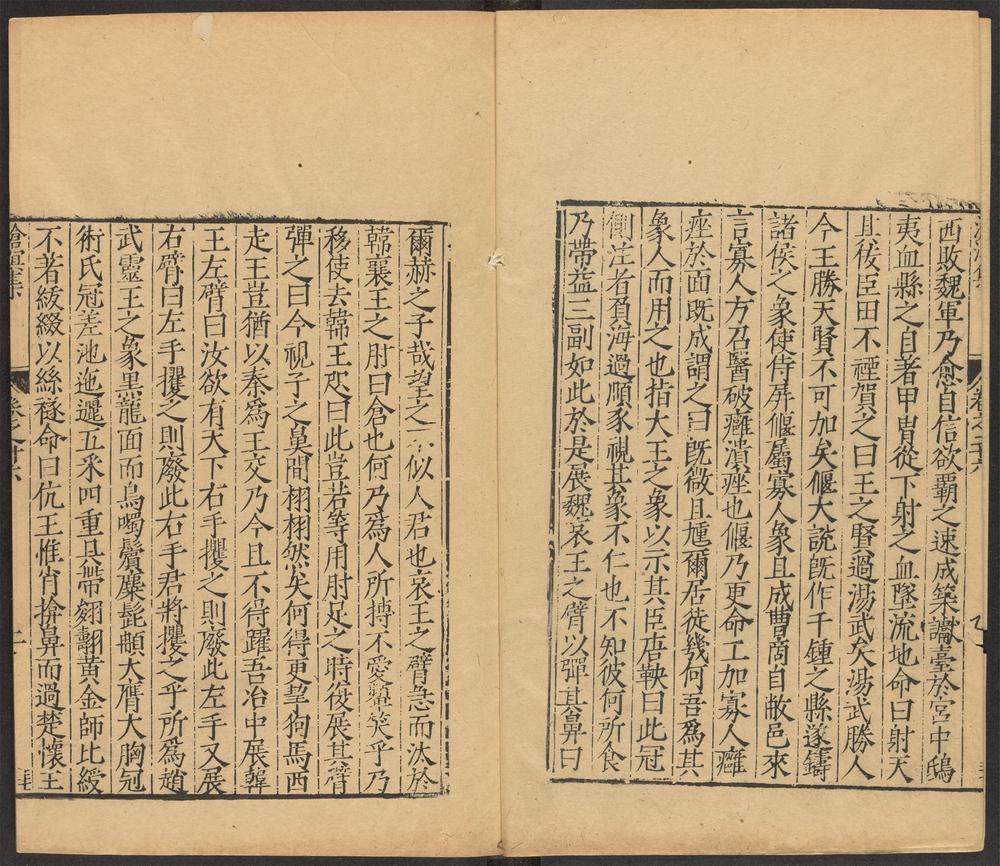 西敗魏軍乃愈自信欲霸之速成築讞臺於宮中鴟
夷血縣之自著甲冑從下射之血墜流地命曰射天
且筏臣田不禋賀之曰王之賢過湯武矣湯武勝人
今王勝天賢不可加矣偃大說旣作千鍾之縣遂鑄
諸侯之象使侍屏偃屬寡人象且成曹商自敝邑來
言寡人方召醫破癰潰痤也偃乃更命工加寡人癰
痤於面旣成謂之曰旣微且尰爾居徒幾何吾爲其
象人而用之也指大王之象以示其臣唐鞅曰此冠
側注者負海過順豕視其象不仁也不知彼何所食
乃帶益三副如此於是展魏哀王之臂以彈其鼻曰
爾赫之子哉望之不似人君也哀王之臂急而汰於
韓襄王之肘曰倉也何乃爲人所搏不愛顰笑乎乃
移使去韓王叱曰此豈若等用肘足之時復展其臂
彈之曰今視子之鼻間栩栩然矣何得更挈狗馬西
走王豈猶以秦爲王交乃今且不得躍吾冶中展韓
王左臂曰汝欲有天下右手攫之則廢此左手又展
右臂曰左手攫之則廢此右手君將攫之乎所爲趙
武靈王之象黑龍面而鳥噣鬢麋髭髯大膺大胸冠
術氏冠差池迤邐五采四重具帶翗翿黃金師比綬
不著綾綴以絲襚命曰伉王惟肖揜鼻而過楚懷王
卷之十六
二